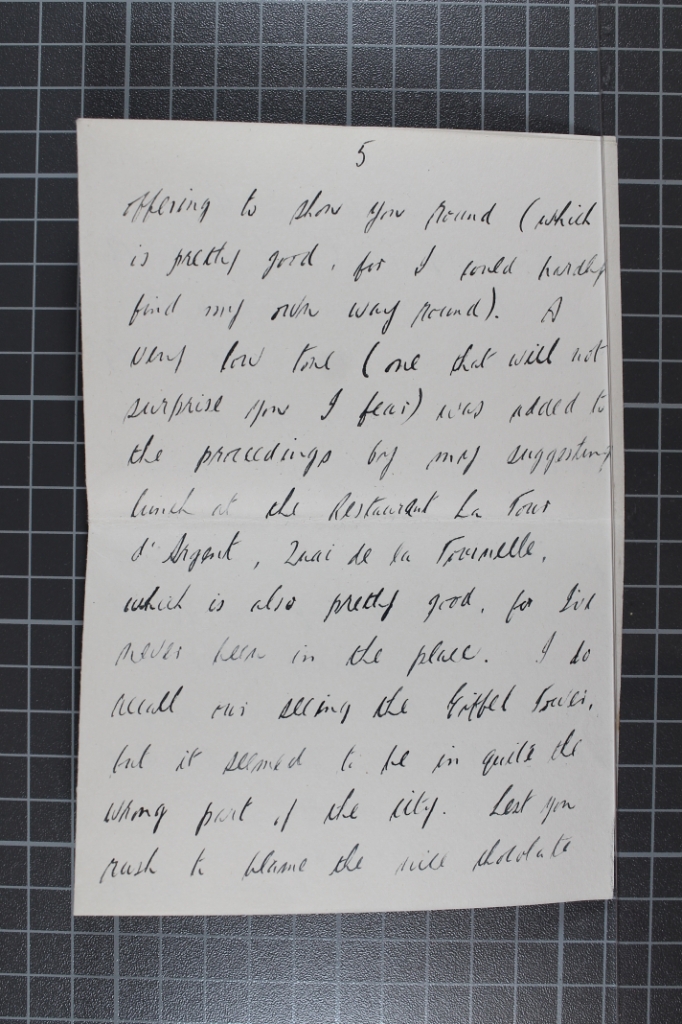 5
offering to show you round (which
is pretty good, for I could hardly
find my own way round). A
very low tone (one that will not
surprise you I fear) was added to
the proceedings by my suggesting
lunch at the Restaurant La Tour
d'Argent, Quai de la Tournelle,
which is also pretty good, for I've
never been in the place. I do
recall our seeing the Eiffel Tower,
but it seemed to be in quite the
wrong part of the city. Lest you
rush to blame the nice chocolate